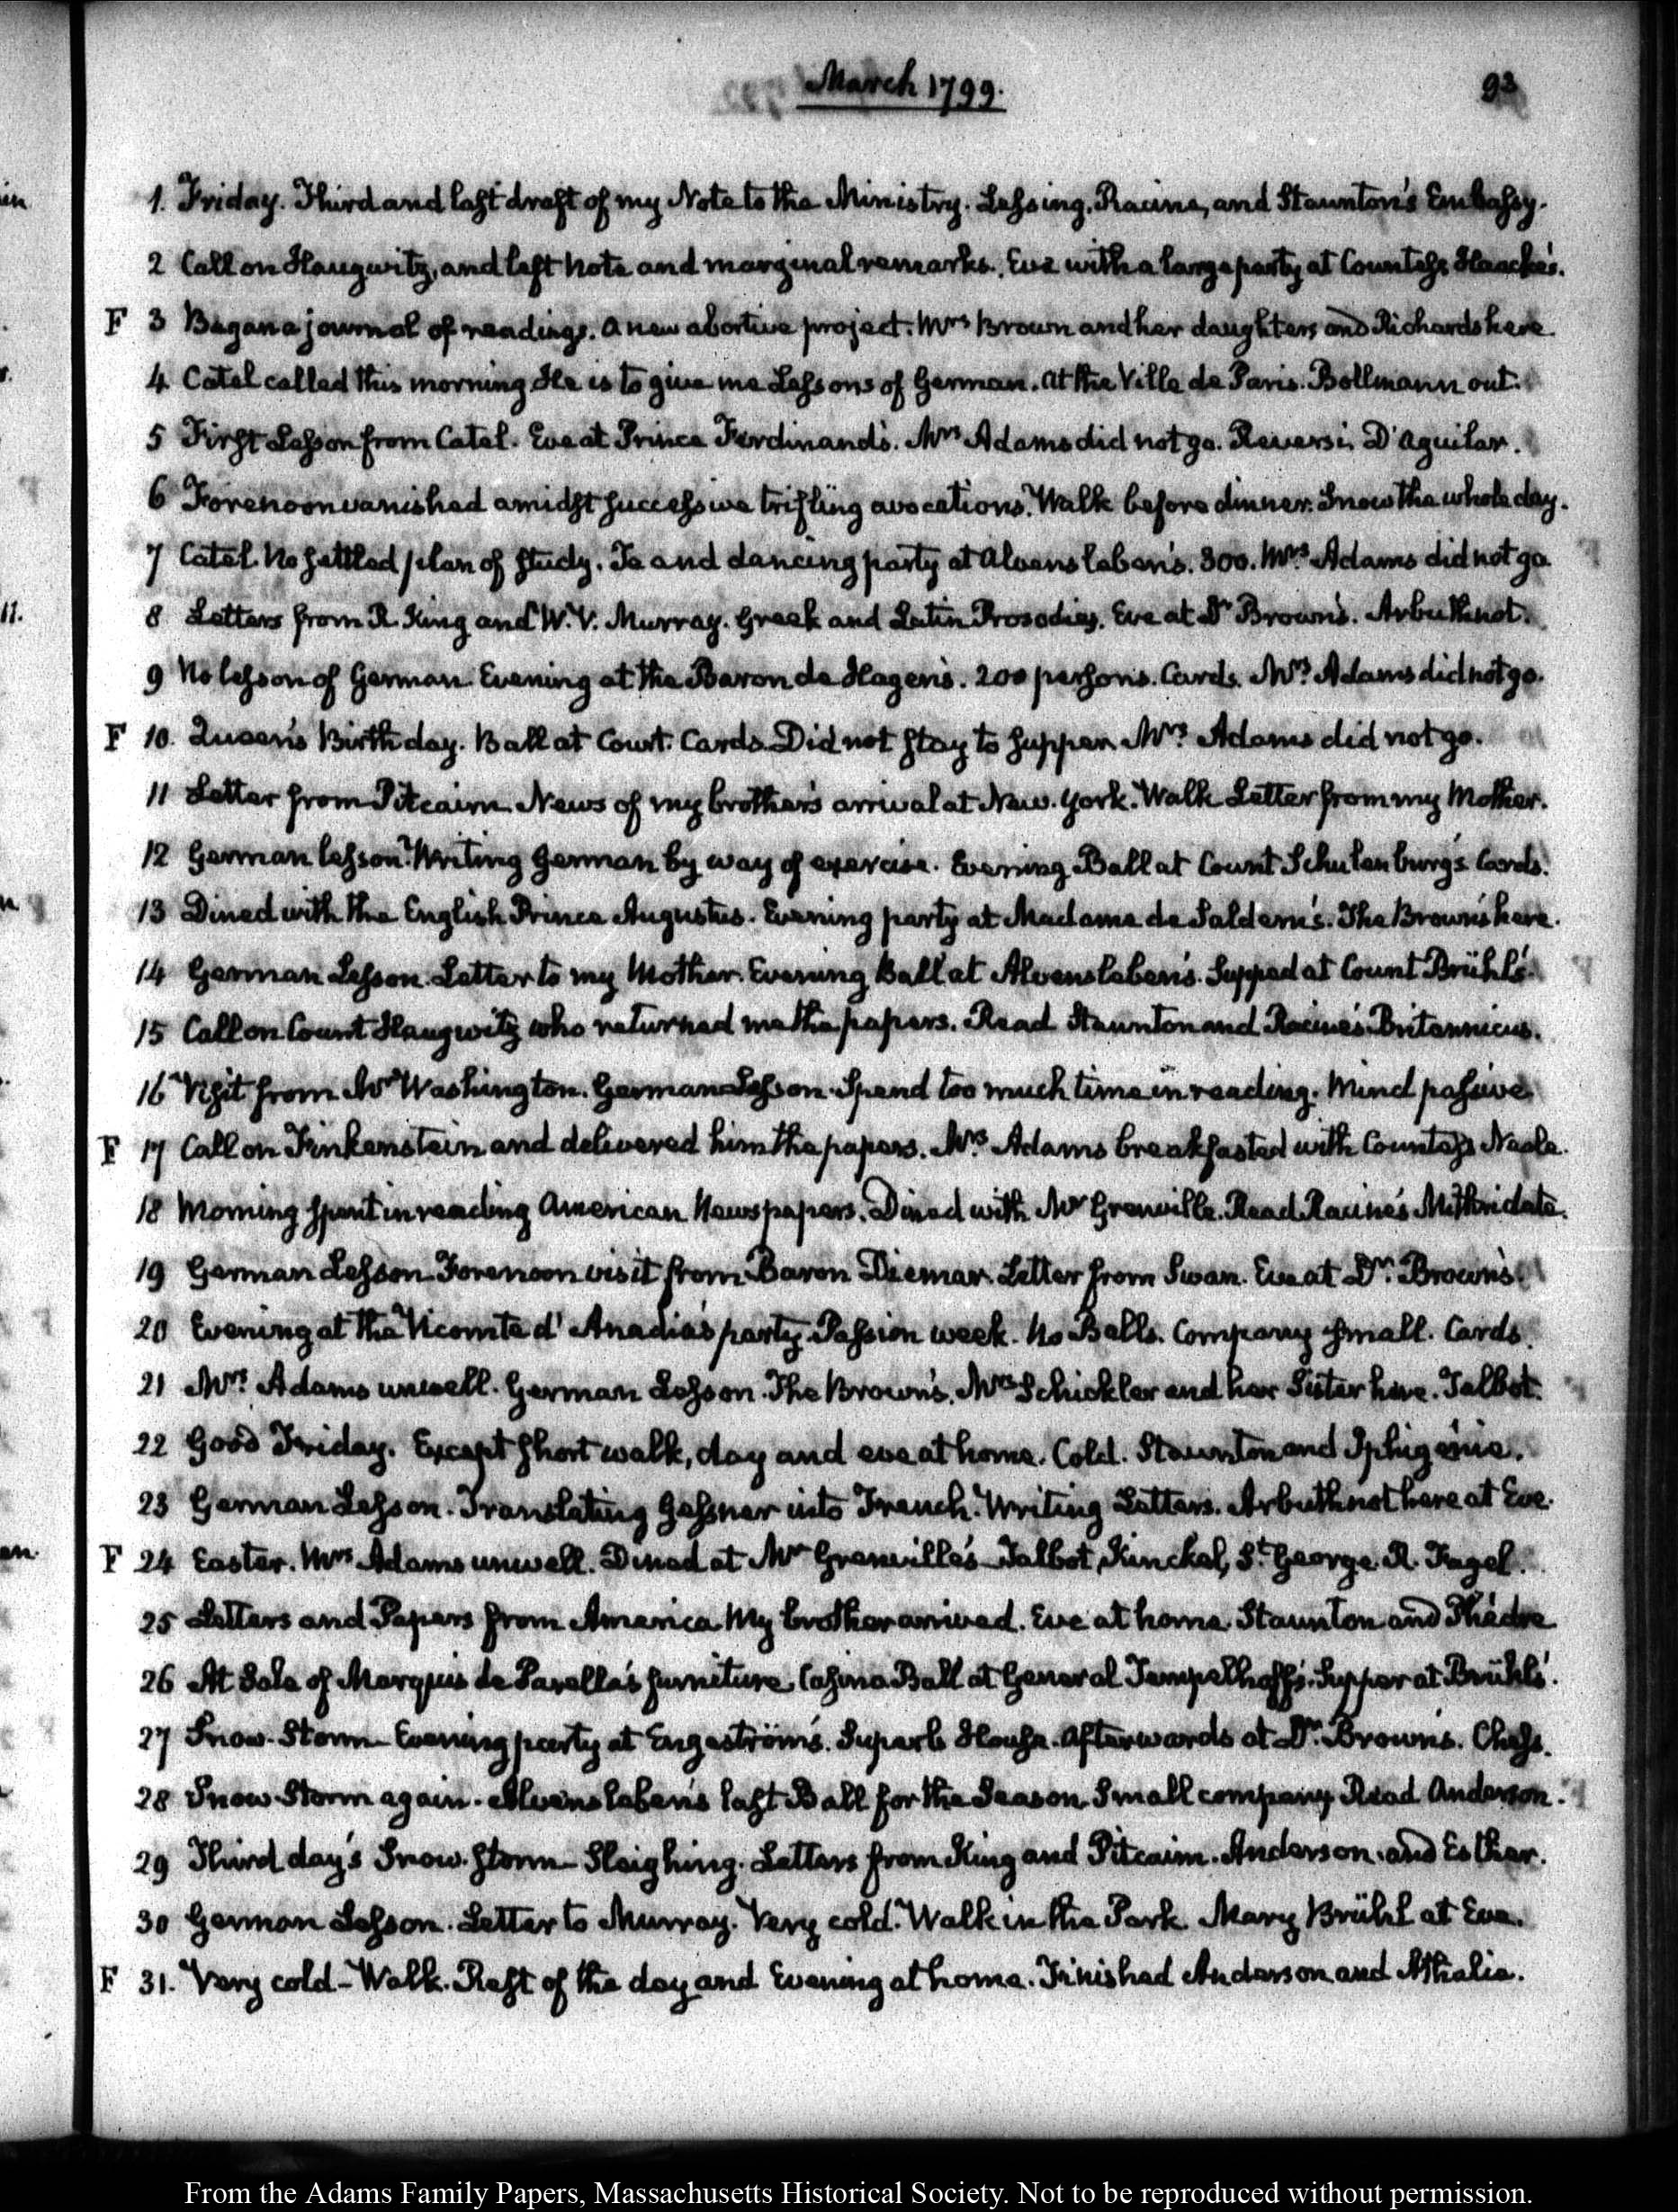 March 1799.
93
1. Friday. Third and last draft of my Note to the Ministry. Lessing, Racine, and Staunton's Embassy.
2 Call on Haugwitz, and left Note and marginal remarks. Eve with a large party at Countess Haacke's.
F 3 Began a journal of readings. A new abortive project. Mrs Brown and her daughters and Richards here.
4 Catel called this morning. He is to give me Lessons of German. At the Ville de Paris. Bollmann out.
5 First Lesson from Catel. Eve at Prince Ferdinand's. Mrs Adams did not go. Reversi. D'Aguilar.
6 Forenoon vanished amidst successive trifling avocations. Walk before dinner. Snow the whole day.
7 Catel. No settled plan of study. Te and dancing party at Alvensleben's. 300. Mrs Adams did not go.
8 Letters from R. King and W. V. Murray. Greek and Latin Prosodies. Eve at Dr Brown's. Arbuthnot.
9 No lesson of German. Evening at the Baron de Hagen's. 200 persons. Cards. Mrs Adams did not go.
F 10. Queen's Birth day. Ball at Court. Cards. Did not stay to supper. Mrs Adams did not go.
11 Letter from Pitcairn. News of my brother's arrival at New-York. Walk. Letter from my Mother.
12 German lesson. Writing German by way of exercise. Evening Ball at Count Schulenburg's Cards.
13 Dined with the English Prince Augustus. Evening party at Madame de Saldern's. The Brown's here.
14 German Lesson. Letter to my Mother. Evening Ball at Alvensleben's. Supped at Count Brühl's.
15 Call on Count Haugwitz who returned me the papers. Read Staunton and Racine's Britannicus.
16 Visit from Mr Washington. German Lesson. Spend too much time in reading. Mind passive
F 17 Call on Finkenstein and delivered him the papers. Mrs Adams breakfasted with Countess Neale.
18 Morning spent in reading American Newspapers. Dined with Mr Grenville. Read Racine's Mithridate.
19 German Lesson. Forenoon visit from Baron Diemar. Letter from Swan. Eve at Dr. Brown's.
20 Evening at the Vicomte d'Anadia's party. Passion week. No Balls. Company small. Cards.
21 Mrs Adams unwell. German Lesson. The Brown's. Mrs Schickler and her Sister here. Talbot.
22 Good Friday. Except short walk, day and eve at home. Cold. Staunton and Iphigénie.
23 German Lesson. Translating Gessner into French. Writing Letters. Arbuthnot here at Eve.
F 24 Easter. Mrs Adams unwell. Dined at Mr Grenville's—Talbot, Kinckel, St George. R. Fagel.
25 Letters and Papers from America. My brother arrived. Eve at home. Staunton and Phédre
26 At Sale of Marquis de Parella's furniture. Casino Ball at General Tempelhoff's. Supper at Brühl's.
27 Snow-Storm—Evening party at Engeström's. Superb House. Afterwards at Dr. Brown's. Chess.
28 Snow-Storm again. Alvensleben's last Ball for the Season. Small company. Read Anderson.
29 Third day's Snow-storm—Sleighing. Letters from King and Pitcairn. Anderson and Esther.
30 German Lesson. Letter to Murray. Very cold. Walk in the Park. Mary Brühl at Eve.
F 31. Very cold—Walk. Rest of the day and Evening at home. Finished Anderson and Athalie.
From the Adams Family Papers, Massachusetts Historical Society. Not to be reproduced without permission.